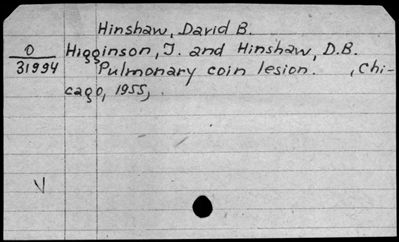 Hinshaw, David B.
O
31994
Higginson, J. and Hinshaw, D.B.
Pulmonary coin lesion. , Chi-
cago, 1955, .
V